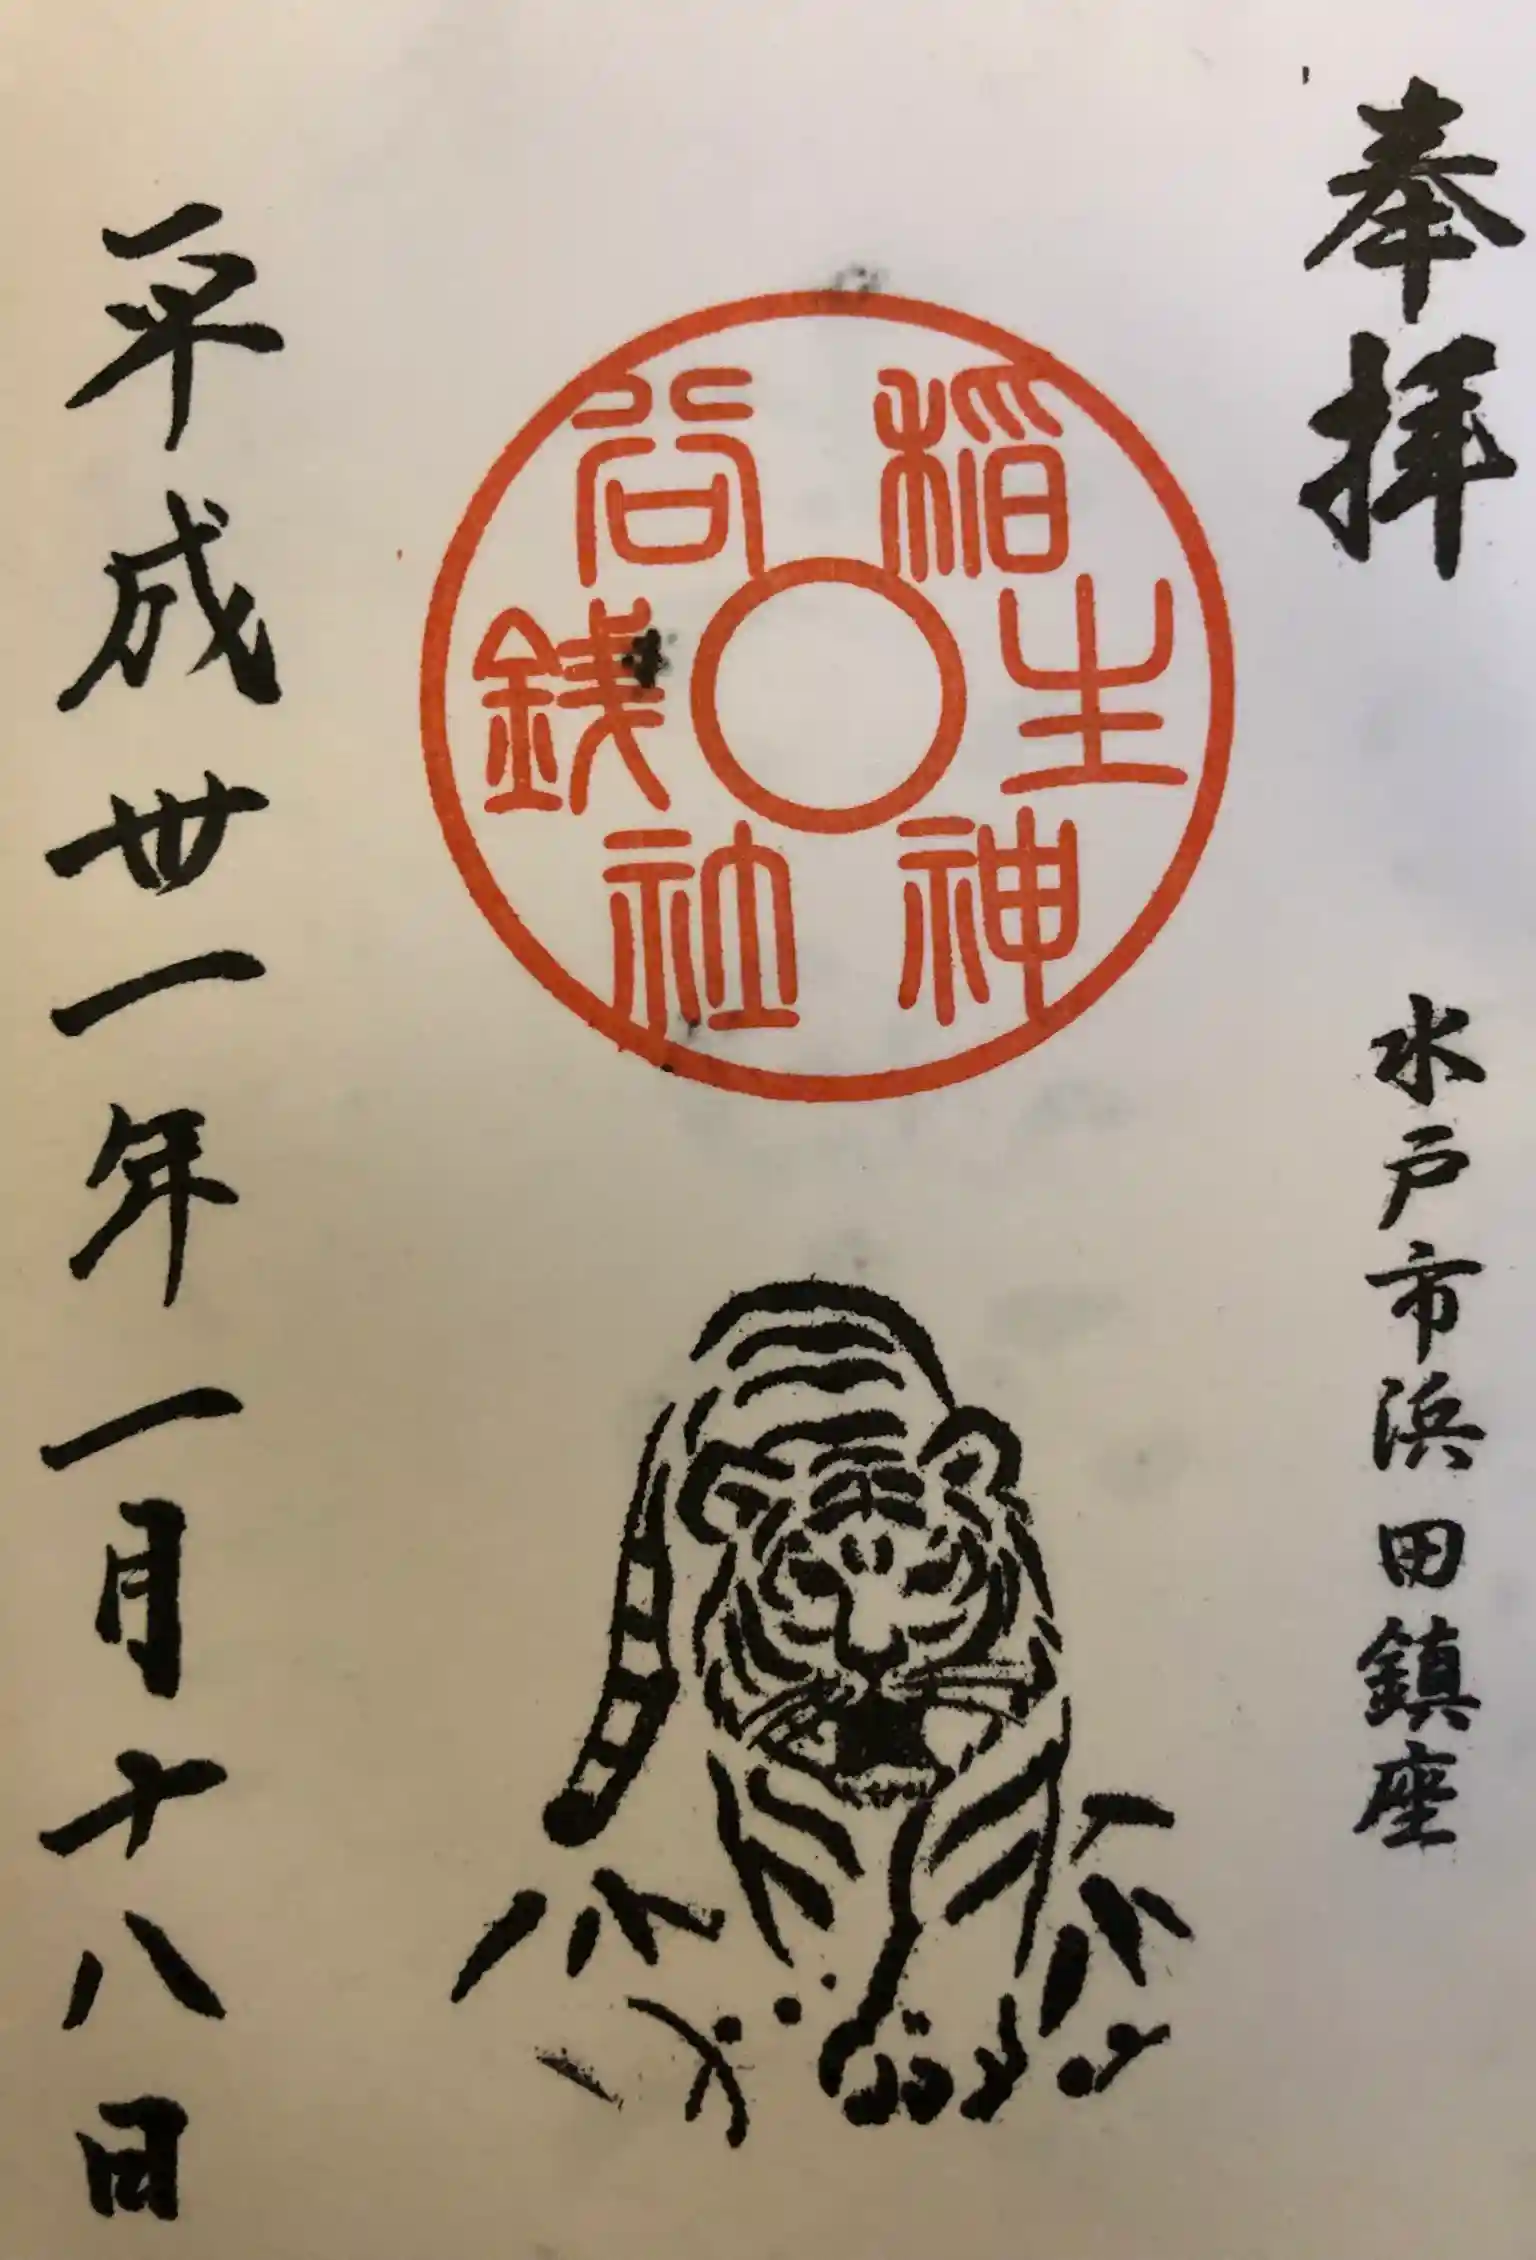 奉拝
水戸市浜田鎮座
稲生神
谷銭社
平成卅一年一月十八日